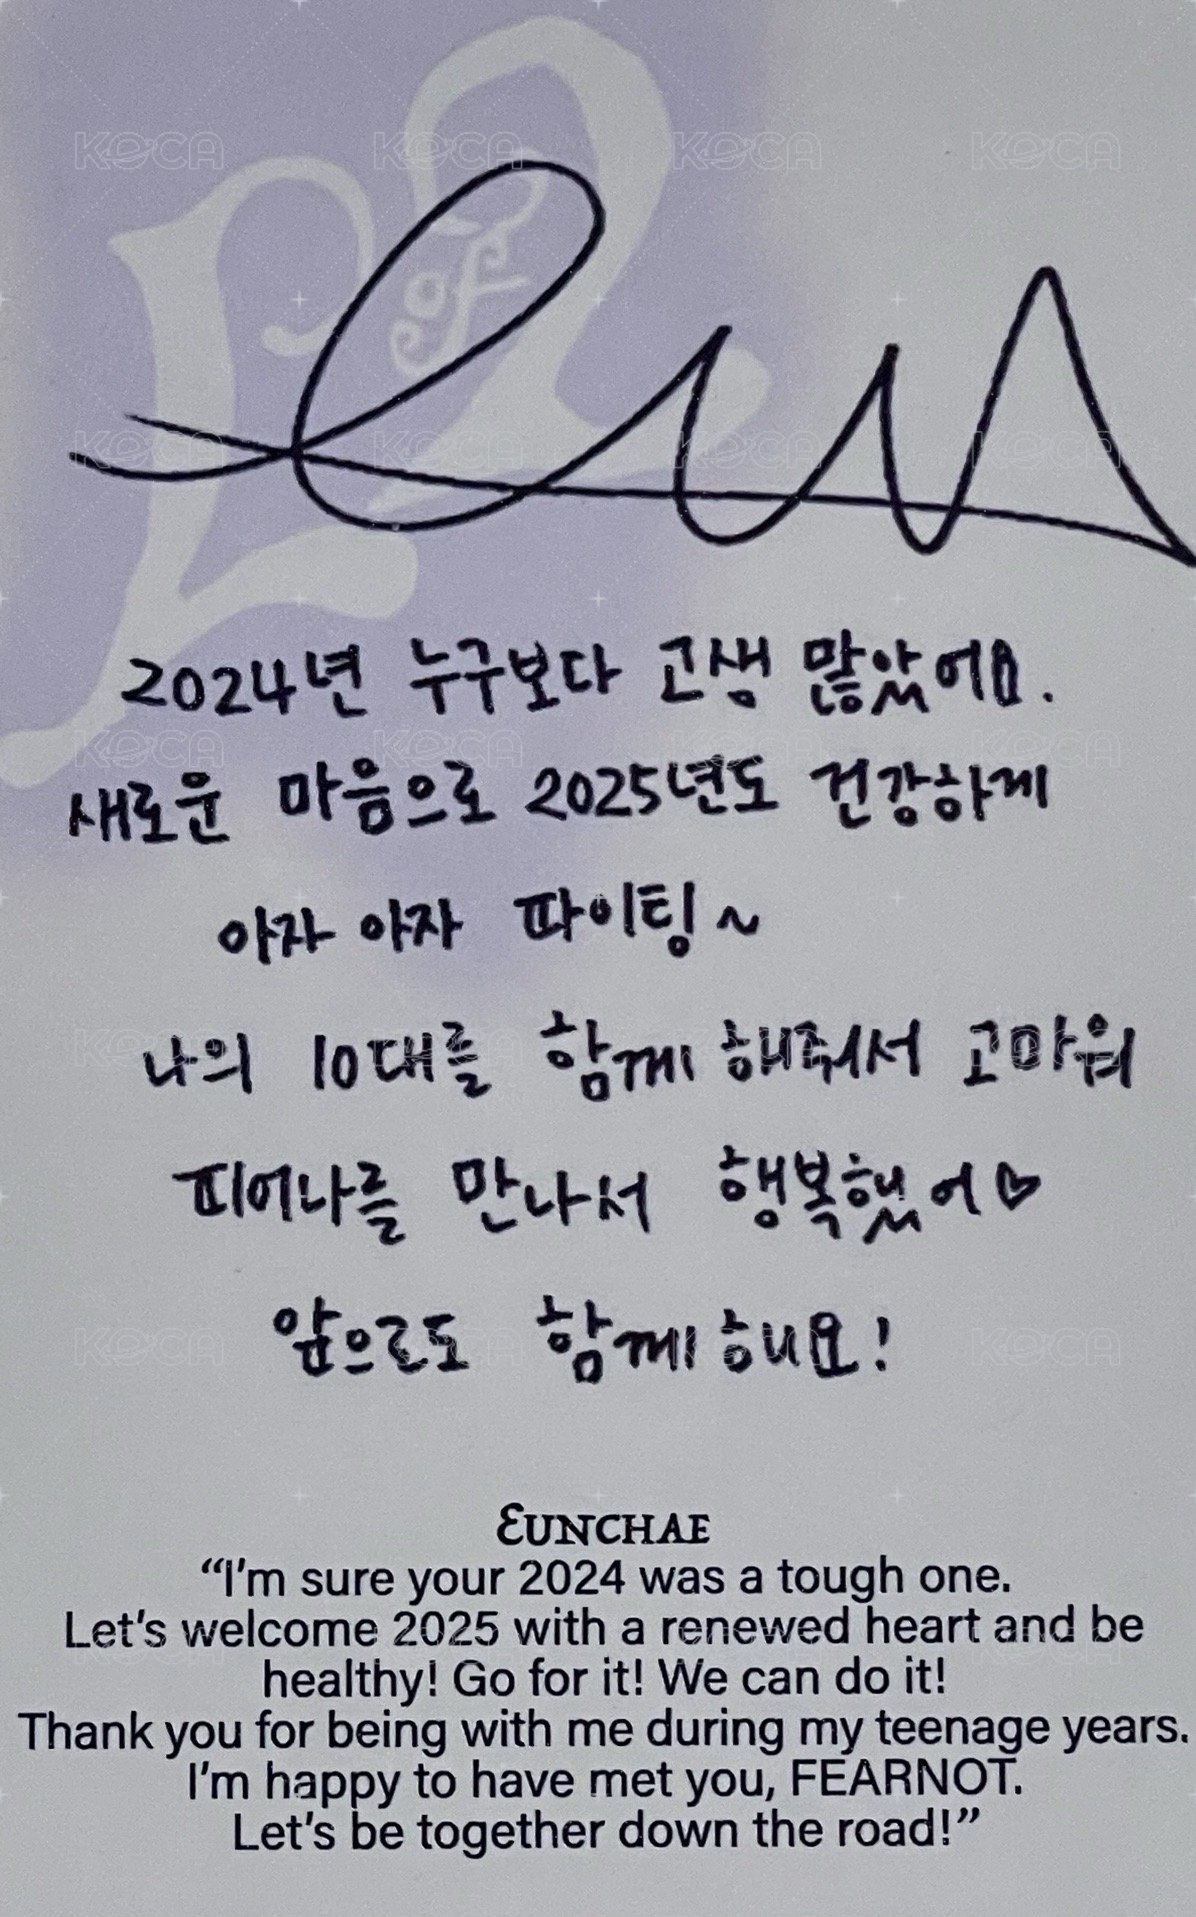 2024년 누구보다 고생 많았어요.
새로운 마음으로 2025년도 건강하게
아자 아자 파이팅~
나의 10대를 함께 해줘서 고마워
피어나를 만나서 행복했어♡
앞으로도 함께해요!
EUNCHAE
“I'm sure your 2024 was a tough one.
Let's welcome 2025 with a renewed heart and be
healthy! Go for it! We can do it!
Thank you for being with me during my teenage years.
I'm happy to have met you, FEARNOT.
Let's be together down the road!”